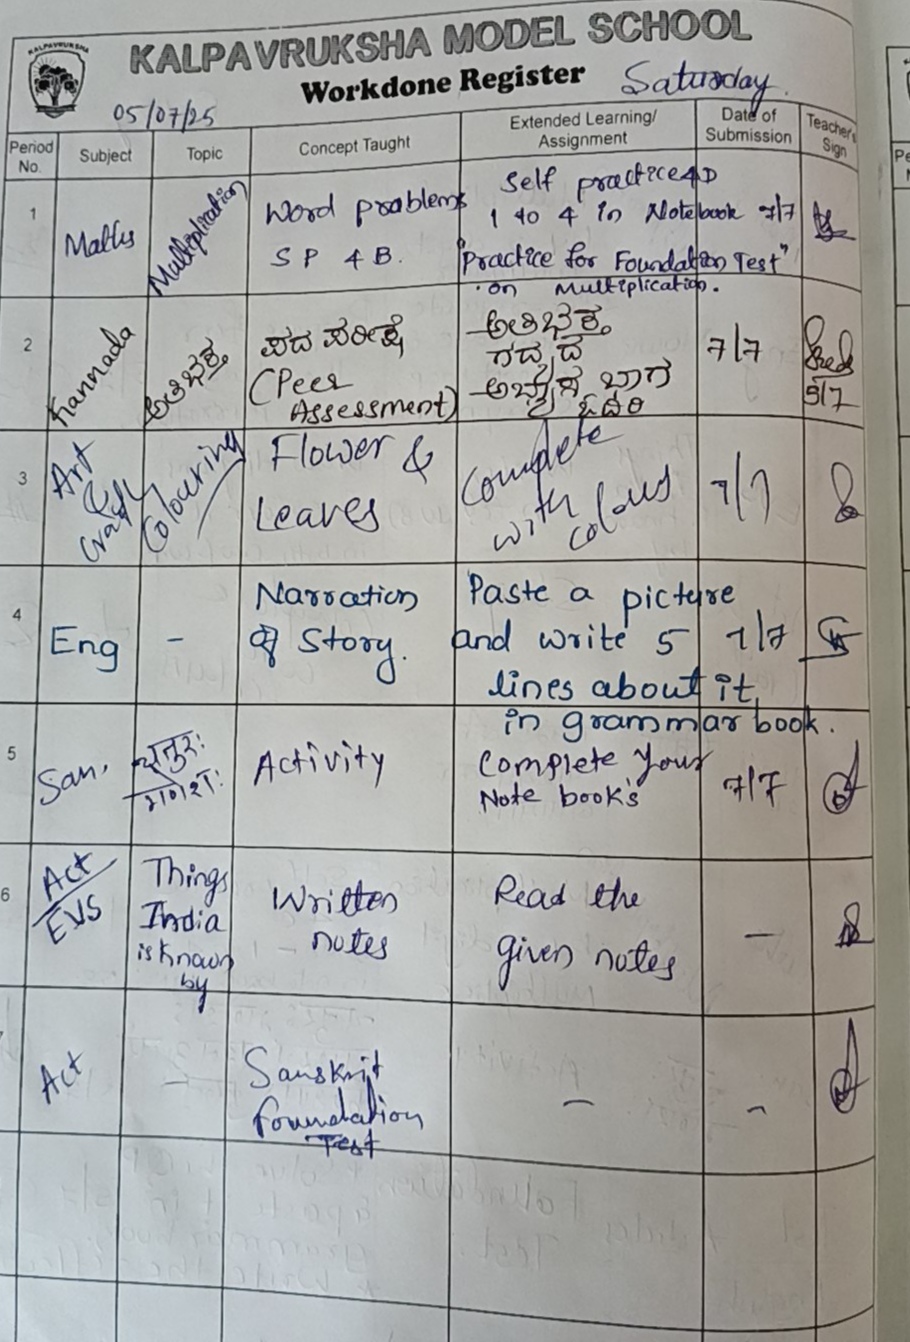 KALPAVRUKSHA
KALPAVRUKSHA MODEL SCHOOL
Workdone Register
Saturday.
05/07/25
Period No.
Subject
Topic
Concept Taught
Extended Learning/
Assignment
Date of
Submission
Teacher's
Sign
1
Maths
Multiplication
Word problems
SP 4B.
Self practice 4D
1 to 4 in Notebook 7/7
"Practice for Foundation Test"
on Multiplication.
2
Kannada
ಅತಿಭಕ್ಷ್ಯ
ಪದ ಪರೀಕ್ಷೆ
(Peer
Assessment)
ಗದ್ಯದ
ಭಾಗ
7/7
5/7
3
Art
&
Craft
Colouring
Flower &
Leaves
Complete
with colours
7/7
4
Eng
-
Narration
of Story.
Paste a picture
and write 5
lines about it
in grammar book.
7/7
5
San.
Activity
Complete your
Note book's
7/7
6
Act/
EVS
Things
India
is known
by
Written
notes
Read the
given notes
-
Act
Sanskrit
foundation
Test
-
-